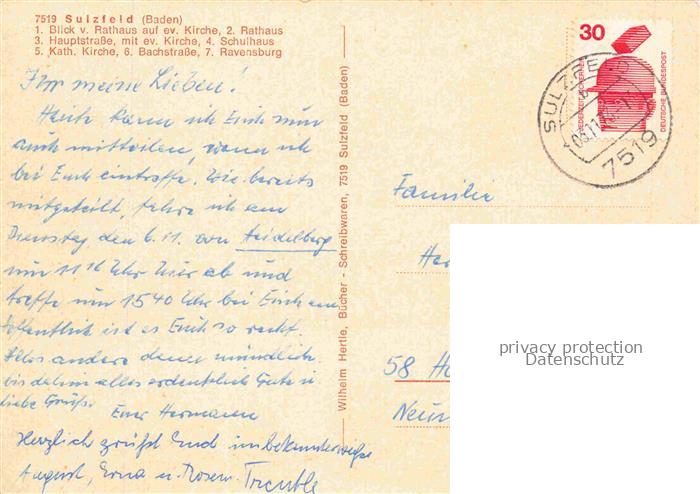 7519 Sulzfeld (Baden)
1. Blick v. Rathaus auf ev. Kirche, 2. Rathaus
3. Hauptstraße, mit ev. Kirche, 4. Schulhaus
5. Kath. Kirche, 6. Bachstraße, 7. Ravensburg
Ihr meine Lieben!
Heute kann ich Euch nun
auch mitteilen, wann ich
bei Euch eintreffe. Wie bereits
mitgeteilt, fahre ich am
Dienstag den 6.11. von Heidelberg
um 11 16 Uhr hier ab und
treffe um 1540 Uhr bei Euch ein
hoffentlich ist es Euch so recht.
Alles andere dann mündlich
bis dahin alles ordentlich Gute u
liebe Grüße. Euer Hermann
Herzlich grüßt Euch unbekannterweise
August, Erna u.
Wilhelm Hertle, Bücher - Schreibwaren, 7519 Sulzfeld (Baden)
30
DEUTSCHE BUNDESPOST
SULZFELD
7519
Familie
58
privacy protection
Datenschutz